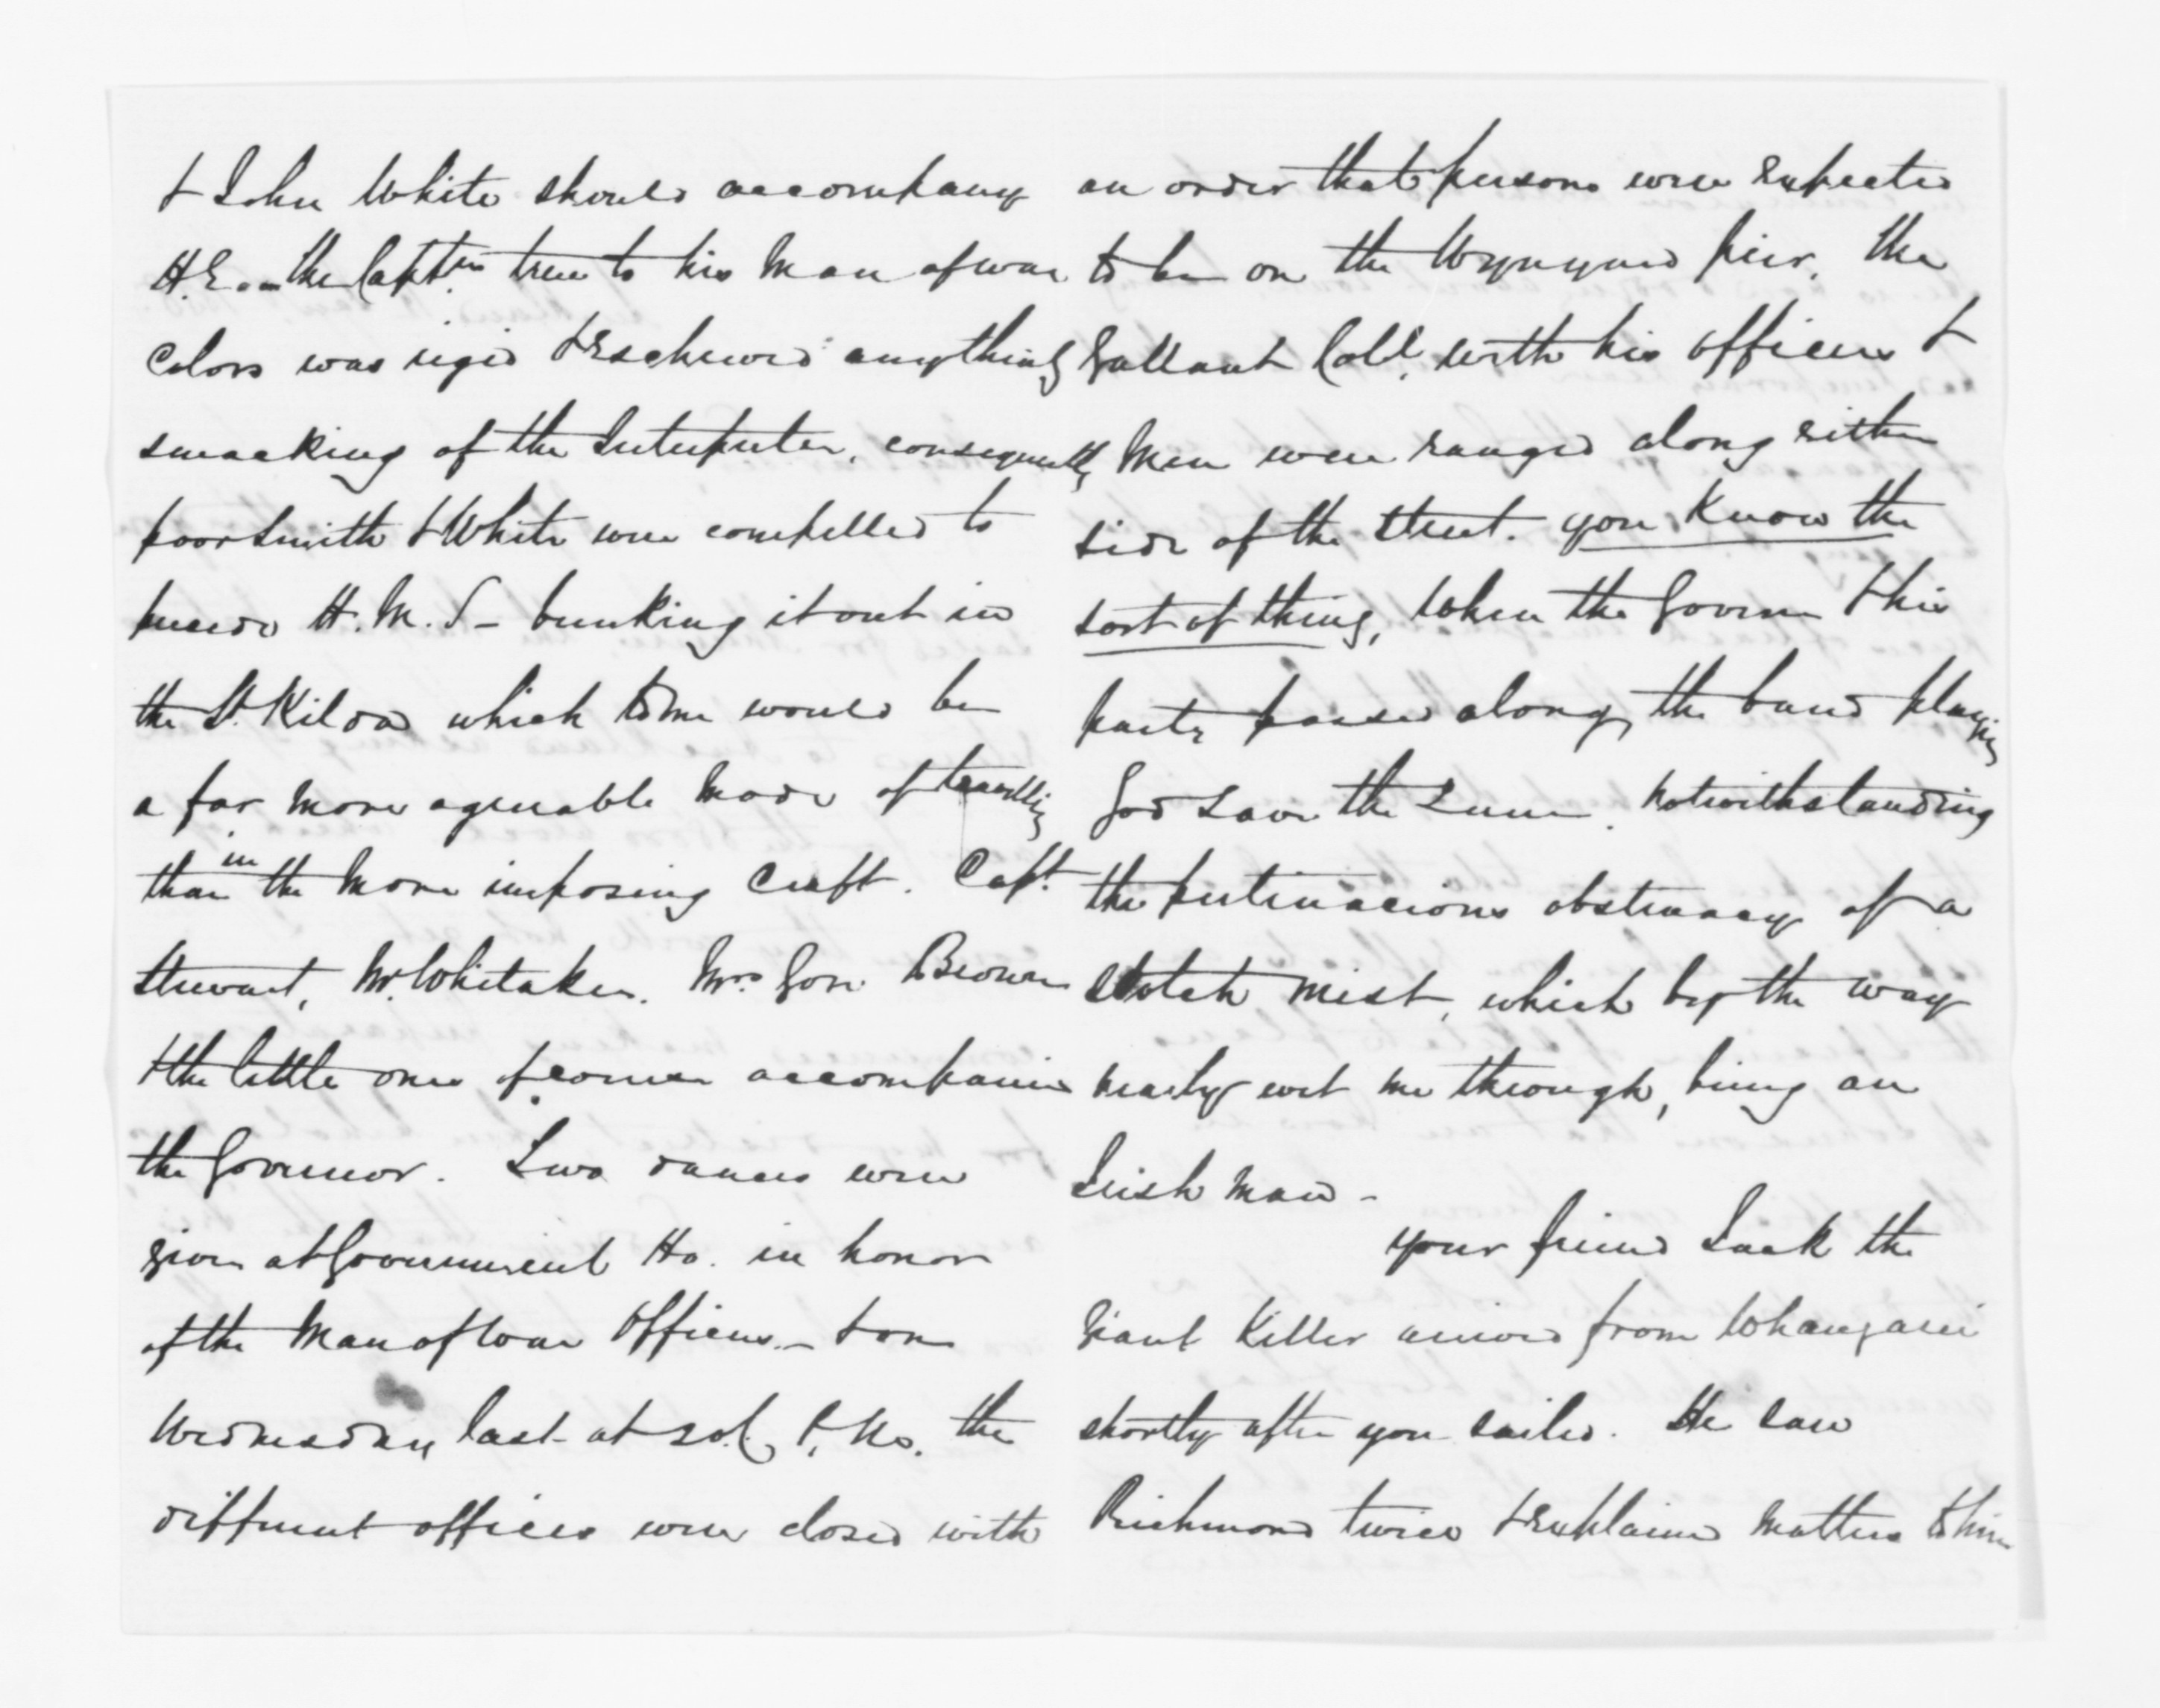 & John White should accompany
H.E. - the Captn true to his Man of war
colors was rigid & eschewed anything
smacking of the Interpreter, consequently
poor Smith & White were compelled to
precede H.M.S - bunking it out in
the St. Kilda which to me would be
a far more agreeable mode of travelling
than in the more imposing craft. Capt.
Steward, Mr. Whitaker. Mrs. Gore Brown
& the little ones of course accompanied
the Governor. Two dances were
given at Government Ho. in honor
of the Man of War Officers. - & on
Wednesday last at P.M. the
different offices were closed with
an order that persons were expected
to be on the Wynyard pier. The
Gallant Coll. with his officers &
Men were ranged along either
side of the Street. you know the
sort of thing, When the Govern & his
party passed along, the band playing
God Save the Queen. Notwithstanding
the pertinacious obstinacy of a
Scotch mist, which by the way
nearly wet me through, being an
Irish man -
your friend Jack the
Giant Killer arrived from Whangarei
shortly after you sailed. He saw
Richmond twice & explained matters to him